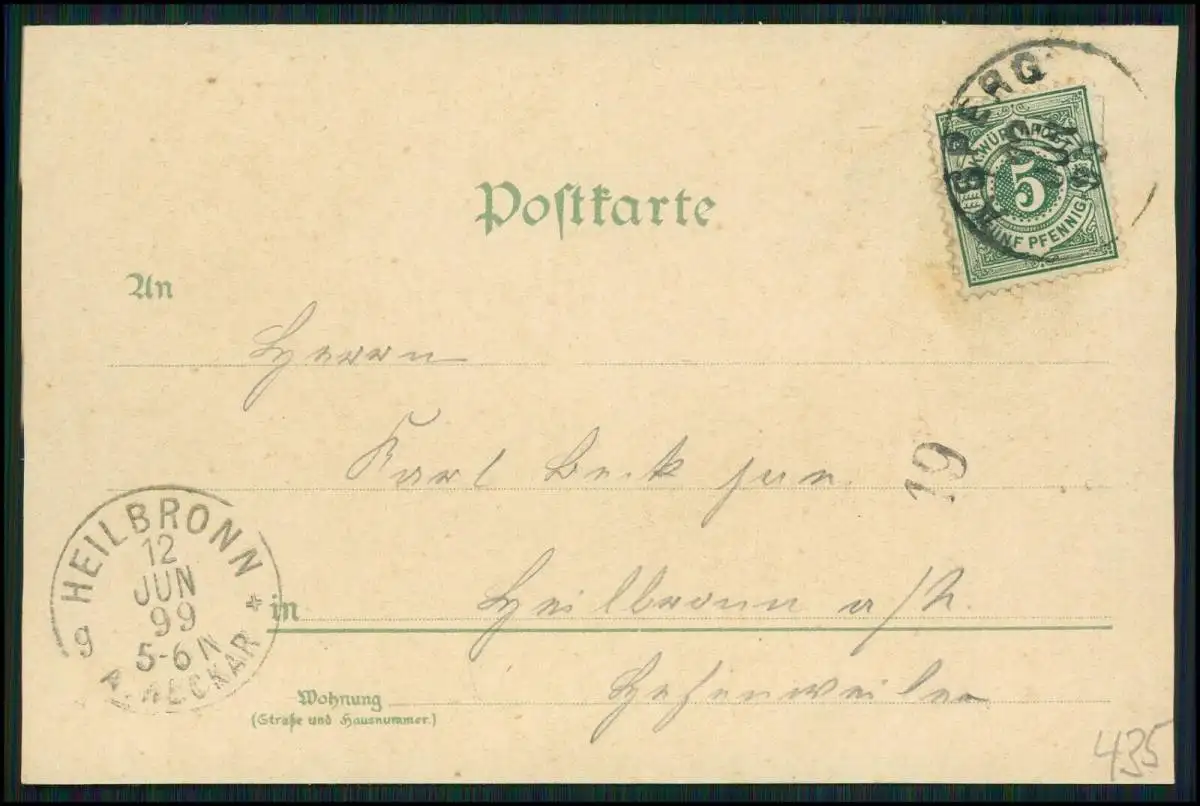 Postkarte
ASPERG
K.WÜRTT.POST
5
FÜNF PFENNIG
An
Herrn
Karl Beck jun.
19
in Heilbronn a/N.
Wohnung
(Straße und Hausnummer.)
HEILBRONN
12
JUN
99
5-6 N
A. NECKAR
9
435